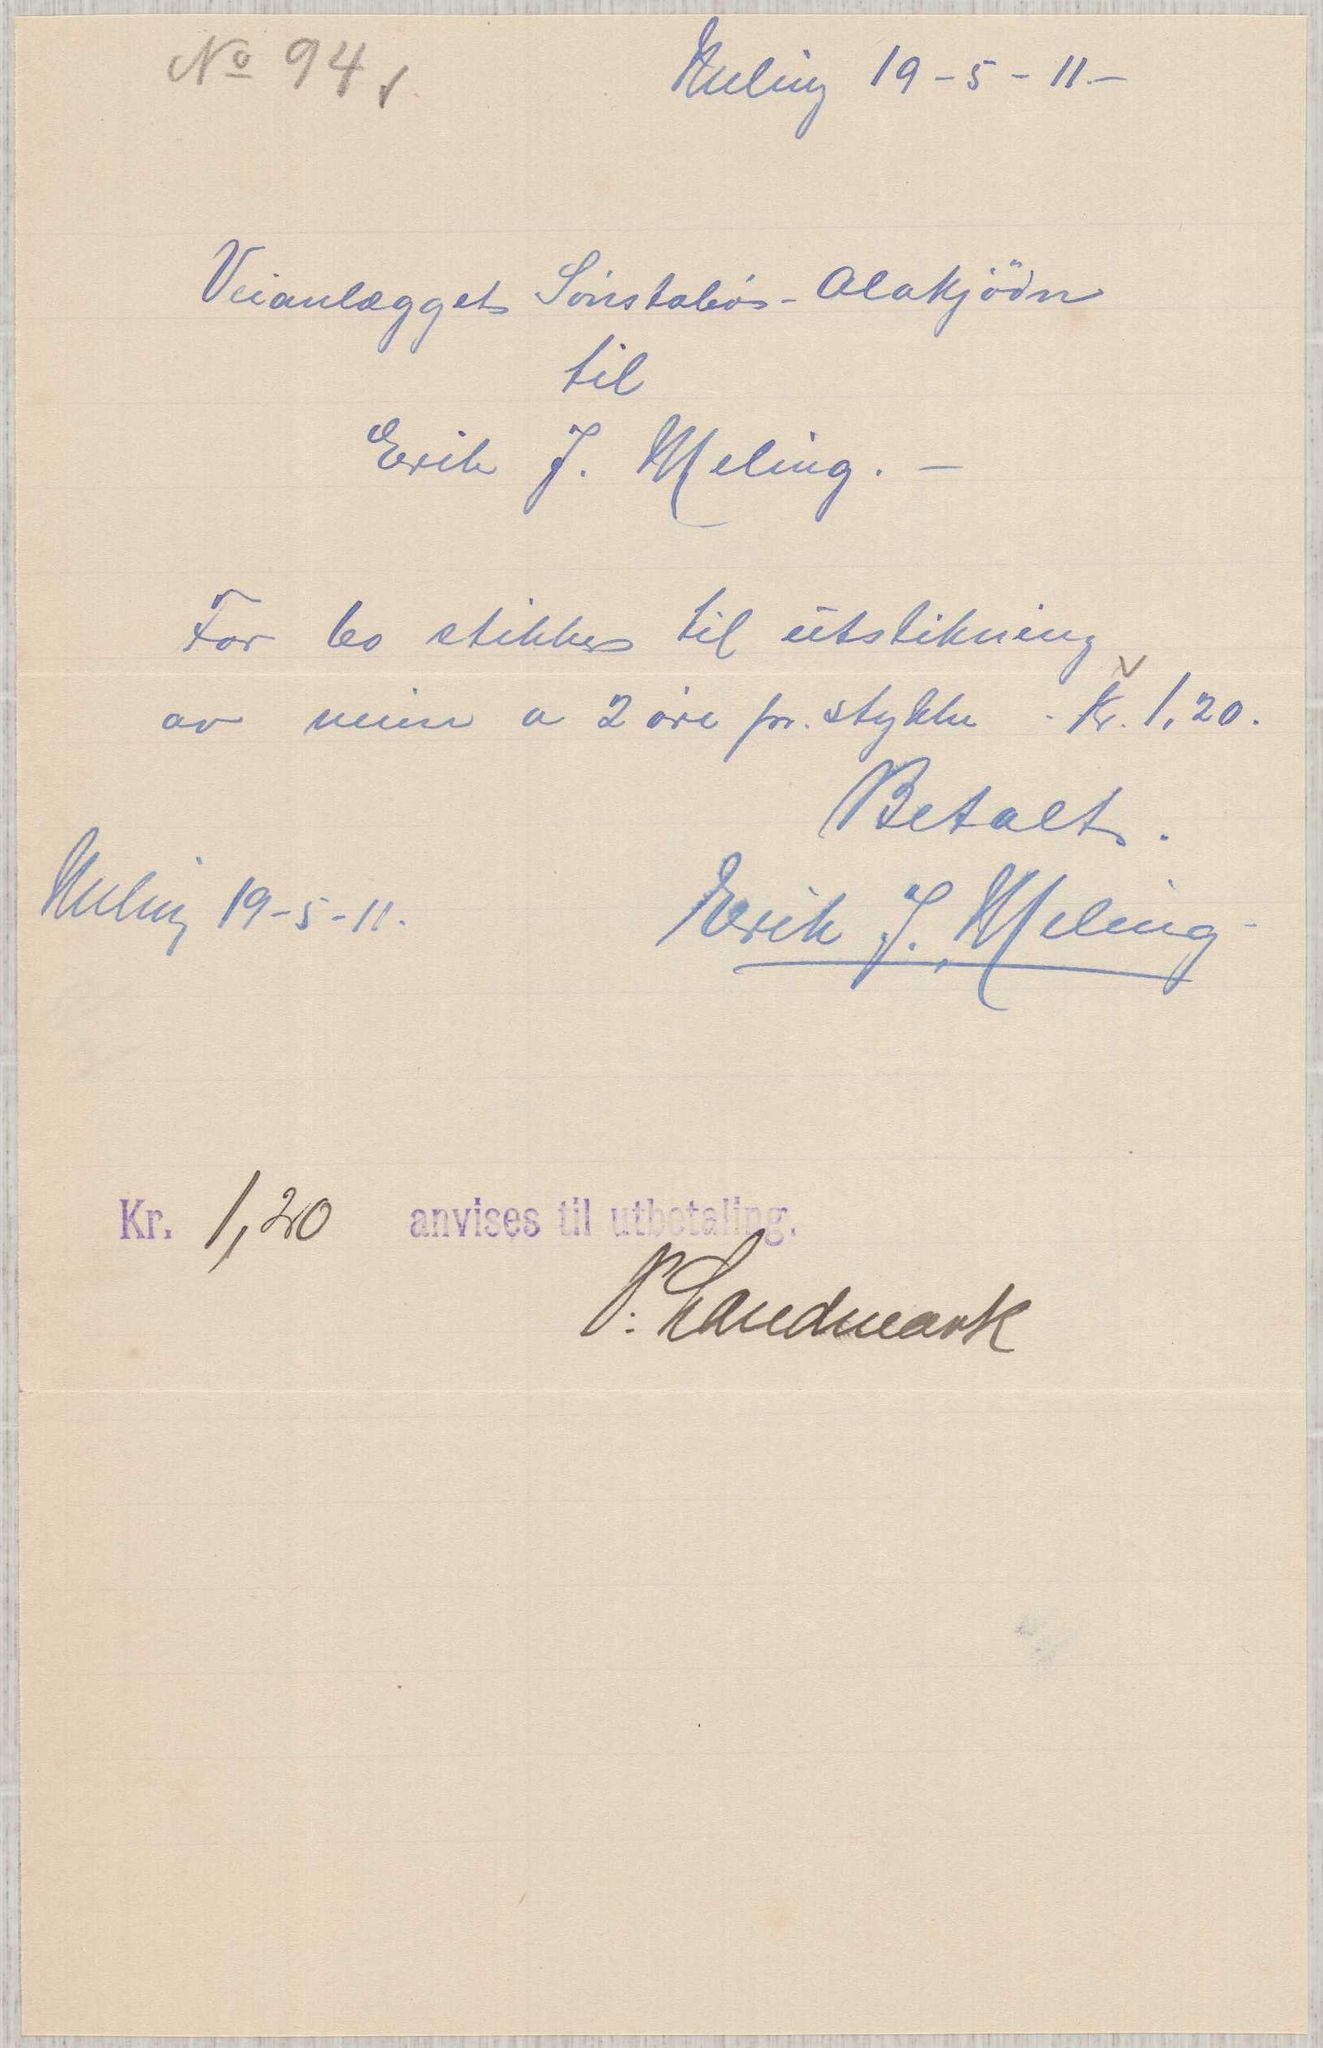 No 94
Meling 19-5-11-
Veianlægget Sönstabö- Alakjödn
til
Erik J. Meling. -
For 60 stikker til utstikning
av veien a 2 öre pr. stykke - Kr. 1,20.
Betalt.
Meling 19-5-11.
Erik J. Meling
Kr. 1,20 anvises til utbetaling.
P. Landmark